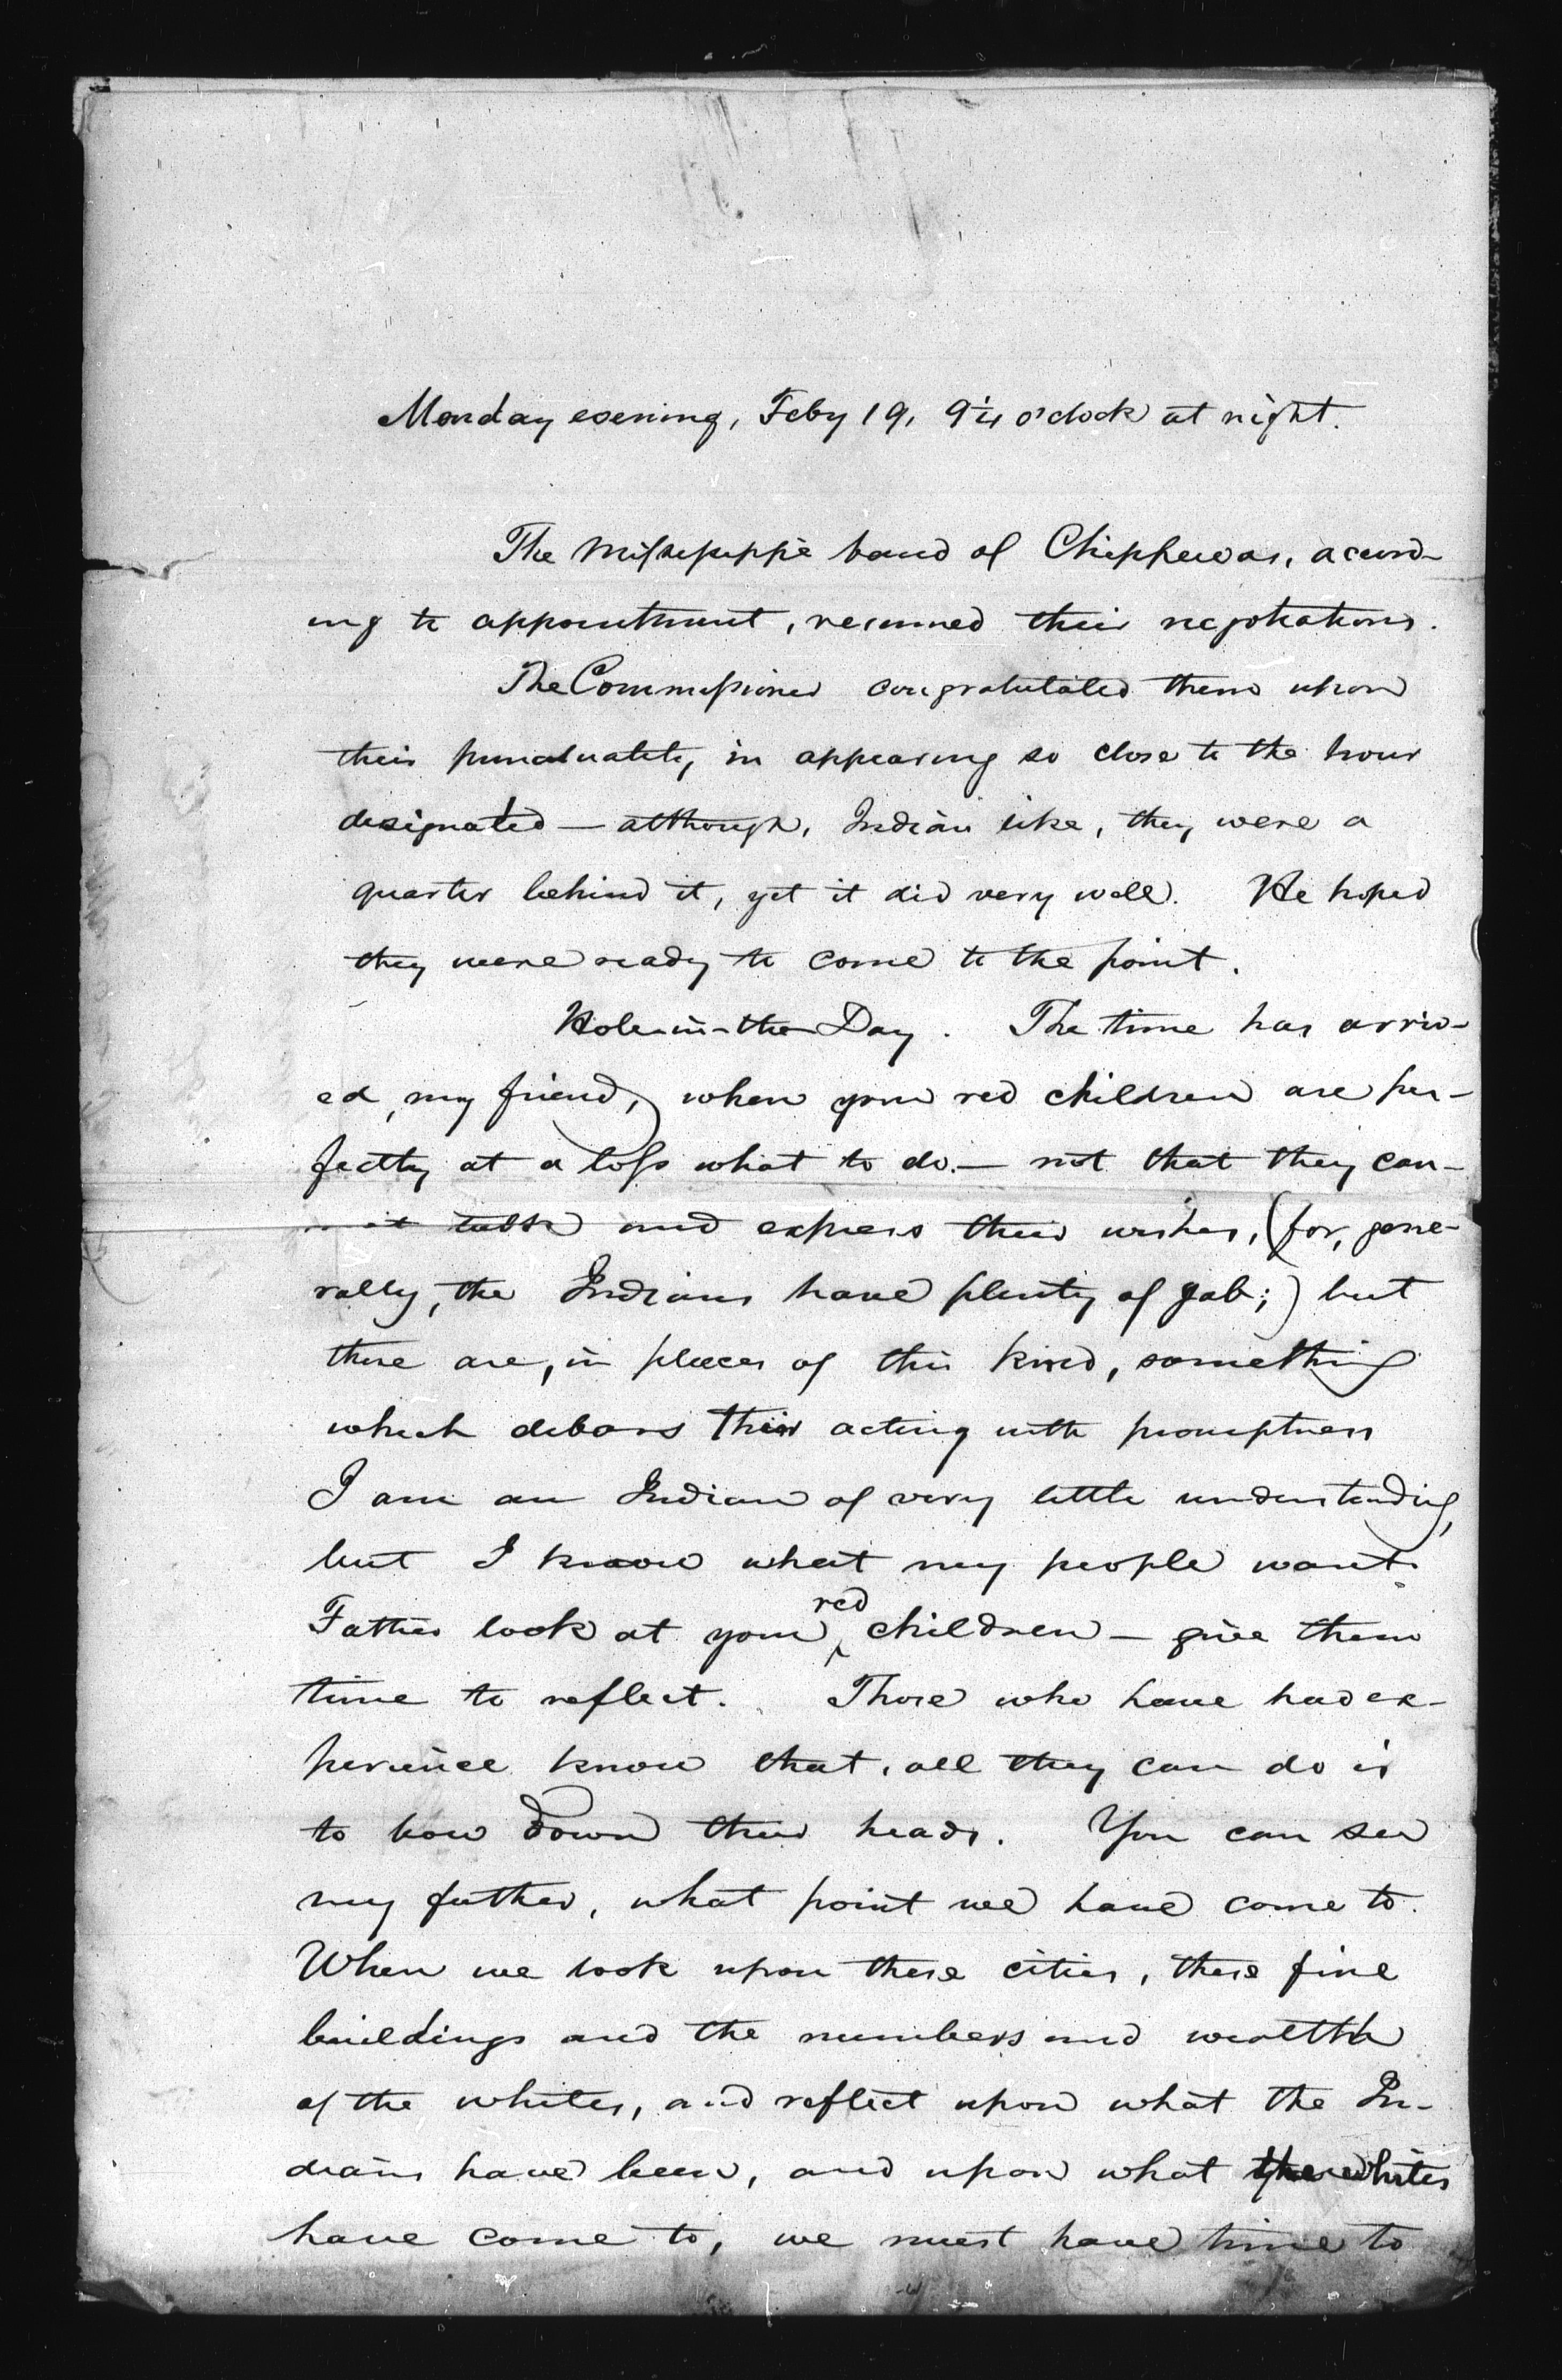 Monday evening, Feby 19, 9 1/4 o'clock at night.
The Mississippie band of Chippewas, accord-
ing to appointment, resumed their negotiations.
The Commissioner congratulated them upon
their punctuality, in appearing so close to the hour
designated — although, Indian like, they were a
quarter behind it, yet it did very well. He hoped
they were ready to come to the point.
Hole-in-the-Day. The time has arriv-
ed, my friend, when your red children are per-
fectly at a loss what to do. — not that they can-
not talk and express their wishes, (for, gene-
rally, the Indians have plenty of gab;) but
there are, in places of this kind, something
which debars their acting with promptness
I am an Indian of very little understanding,
but I know what my people want.
Father look at your red children — give them
time to reflect. Those who have had ex-
perience know that, all they can do is
to bow down their heads. You can see
my father, what point we have come to.
When we look upon these cities, these fine
buildings and the numbers and wealth
of the whites, and reflect upon what the In-
dians have been, and upon what the whites
have come to, we must have time to